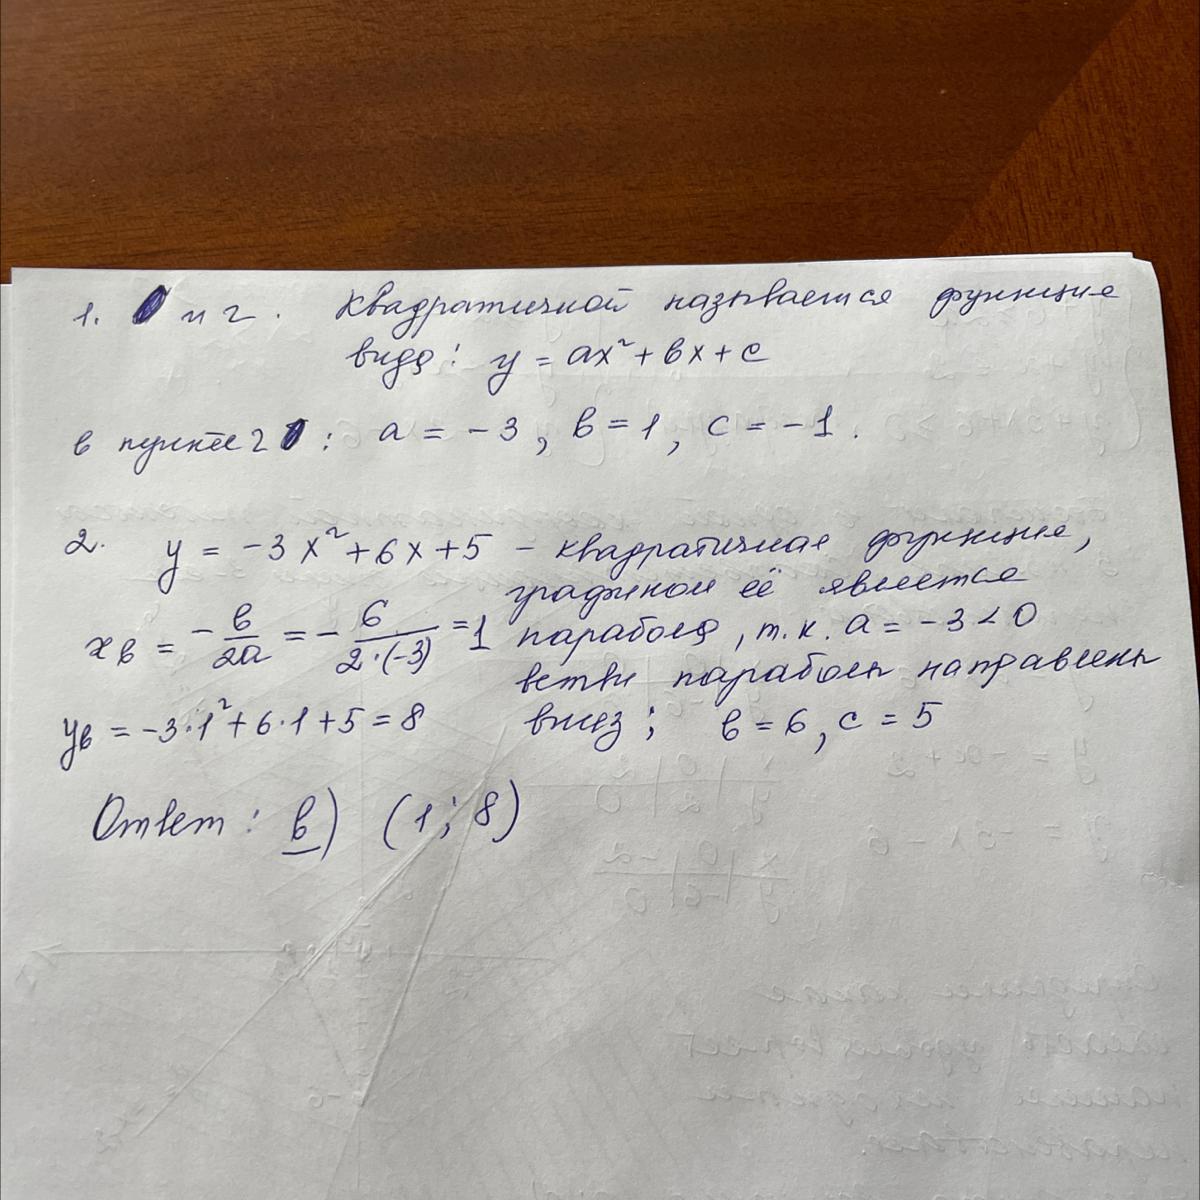 1. и г. Квадратичной называется функция
вида: y = ax² + bx + c
в пункте г : a = -3, b = 1, c = -1.
2. y = -3x² + 6x + 5 - квадратичная функция,
графиком её является
x_в = -b/2a = -6/2·(-3) = 1 парабола, т.к. a = -3 < 0
ветви параболы направлены
y_в = -3·1² + 6·1 + 5 = 8 вниз; b = 6, c = 5
Ответ: в) (1; 8)